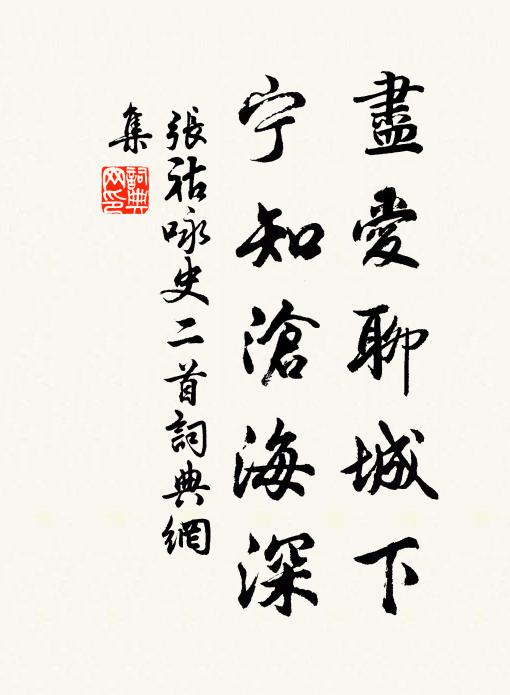 盡愛聊城下
宁知滄海深
張祜咏史二首詞典網
集
詞典
网印